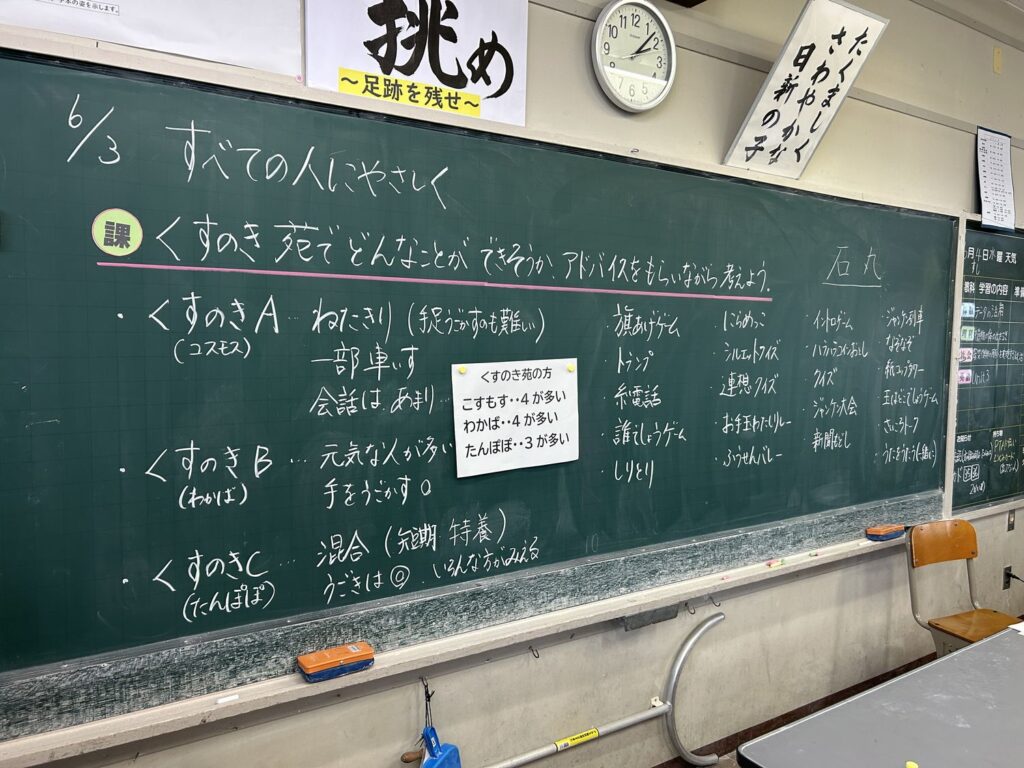 挑め
～足跡を残せ～
たくましく
さわやかな
日新の子
6/3
すべての人にやさしく
課
くすのき苑でどんなことができそうか、アドバイスをもらいながら考えよう。
石丸
・くすのきA…ねたきり(手足うごかすのも難しい)
(コスモス)
一部車いす
会話はあまり
・くすのきB…元気な人が多い
(わかば)
手をうごかす○
・くすのきC…混合(短期 特養)
(たんぽぽ)
うごきは◎.いろんな方がみえる
くすのき苑の方
こすもす・・4が多い
わかば・・4が多い
たんぽぽ・・3が多い
・旗あげゲーム
・トランプ
・糸電話
・誰でしょうゲーム
・しりとり
・にらめっこ
・シルエットクイズ
・連想クイズ
・お手玉わたしリレー
・ふうせんバレー
・イントロゲーム
・クイズ
・ジャンケン大会
・ジャンケン列車
・なぞなぞ
・紙コップタワー
・玉はどこでしょうゲーム
・さいころトーク
・うたをうたう(一緒に)
月4日水曜 天気
教科 学習の内容 準備